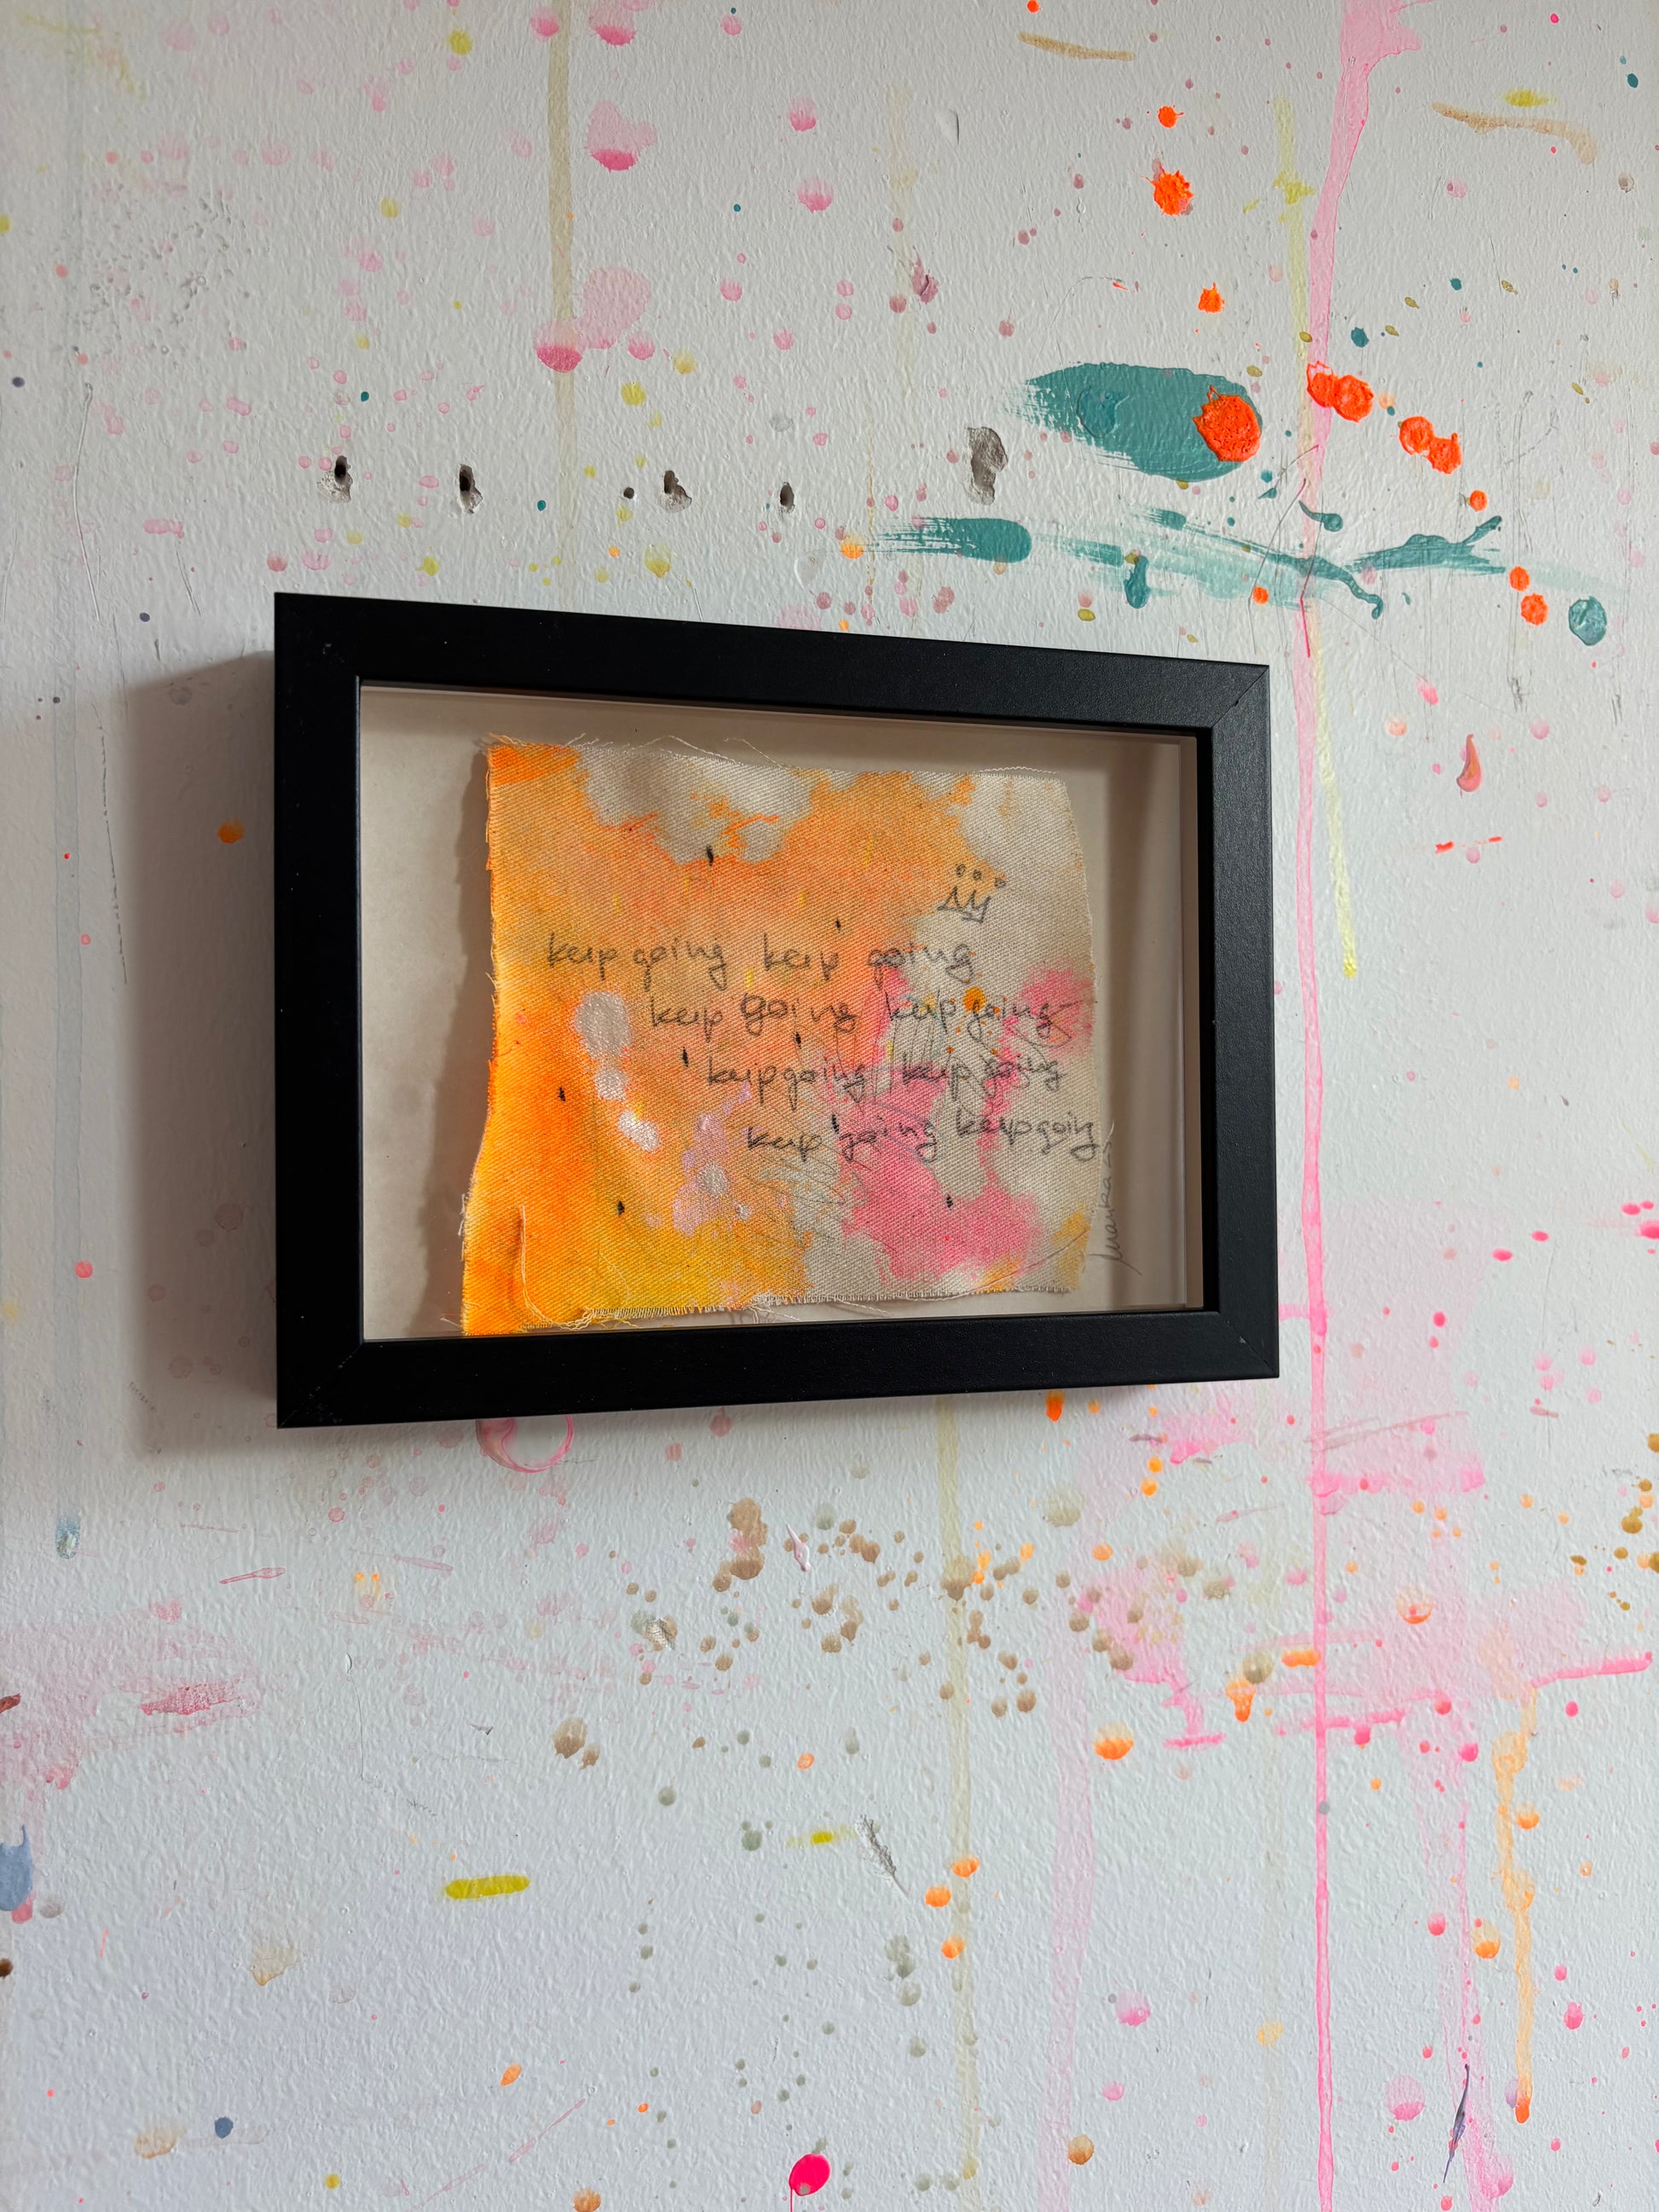 keep going keep going
keep going keep going
keep going keep going
keep going keep going